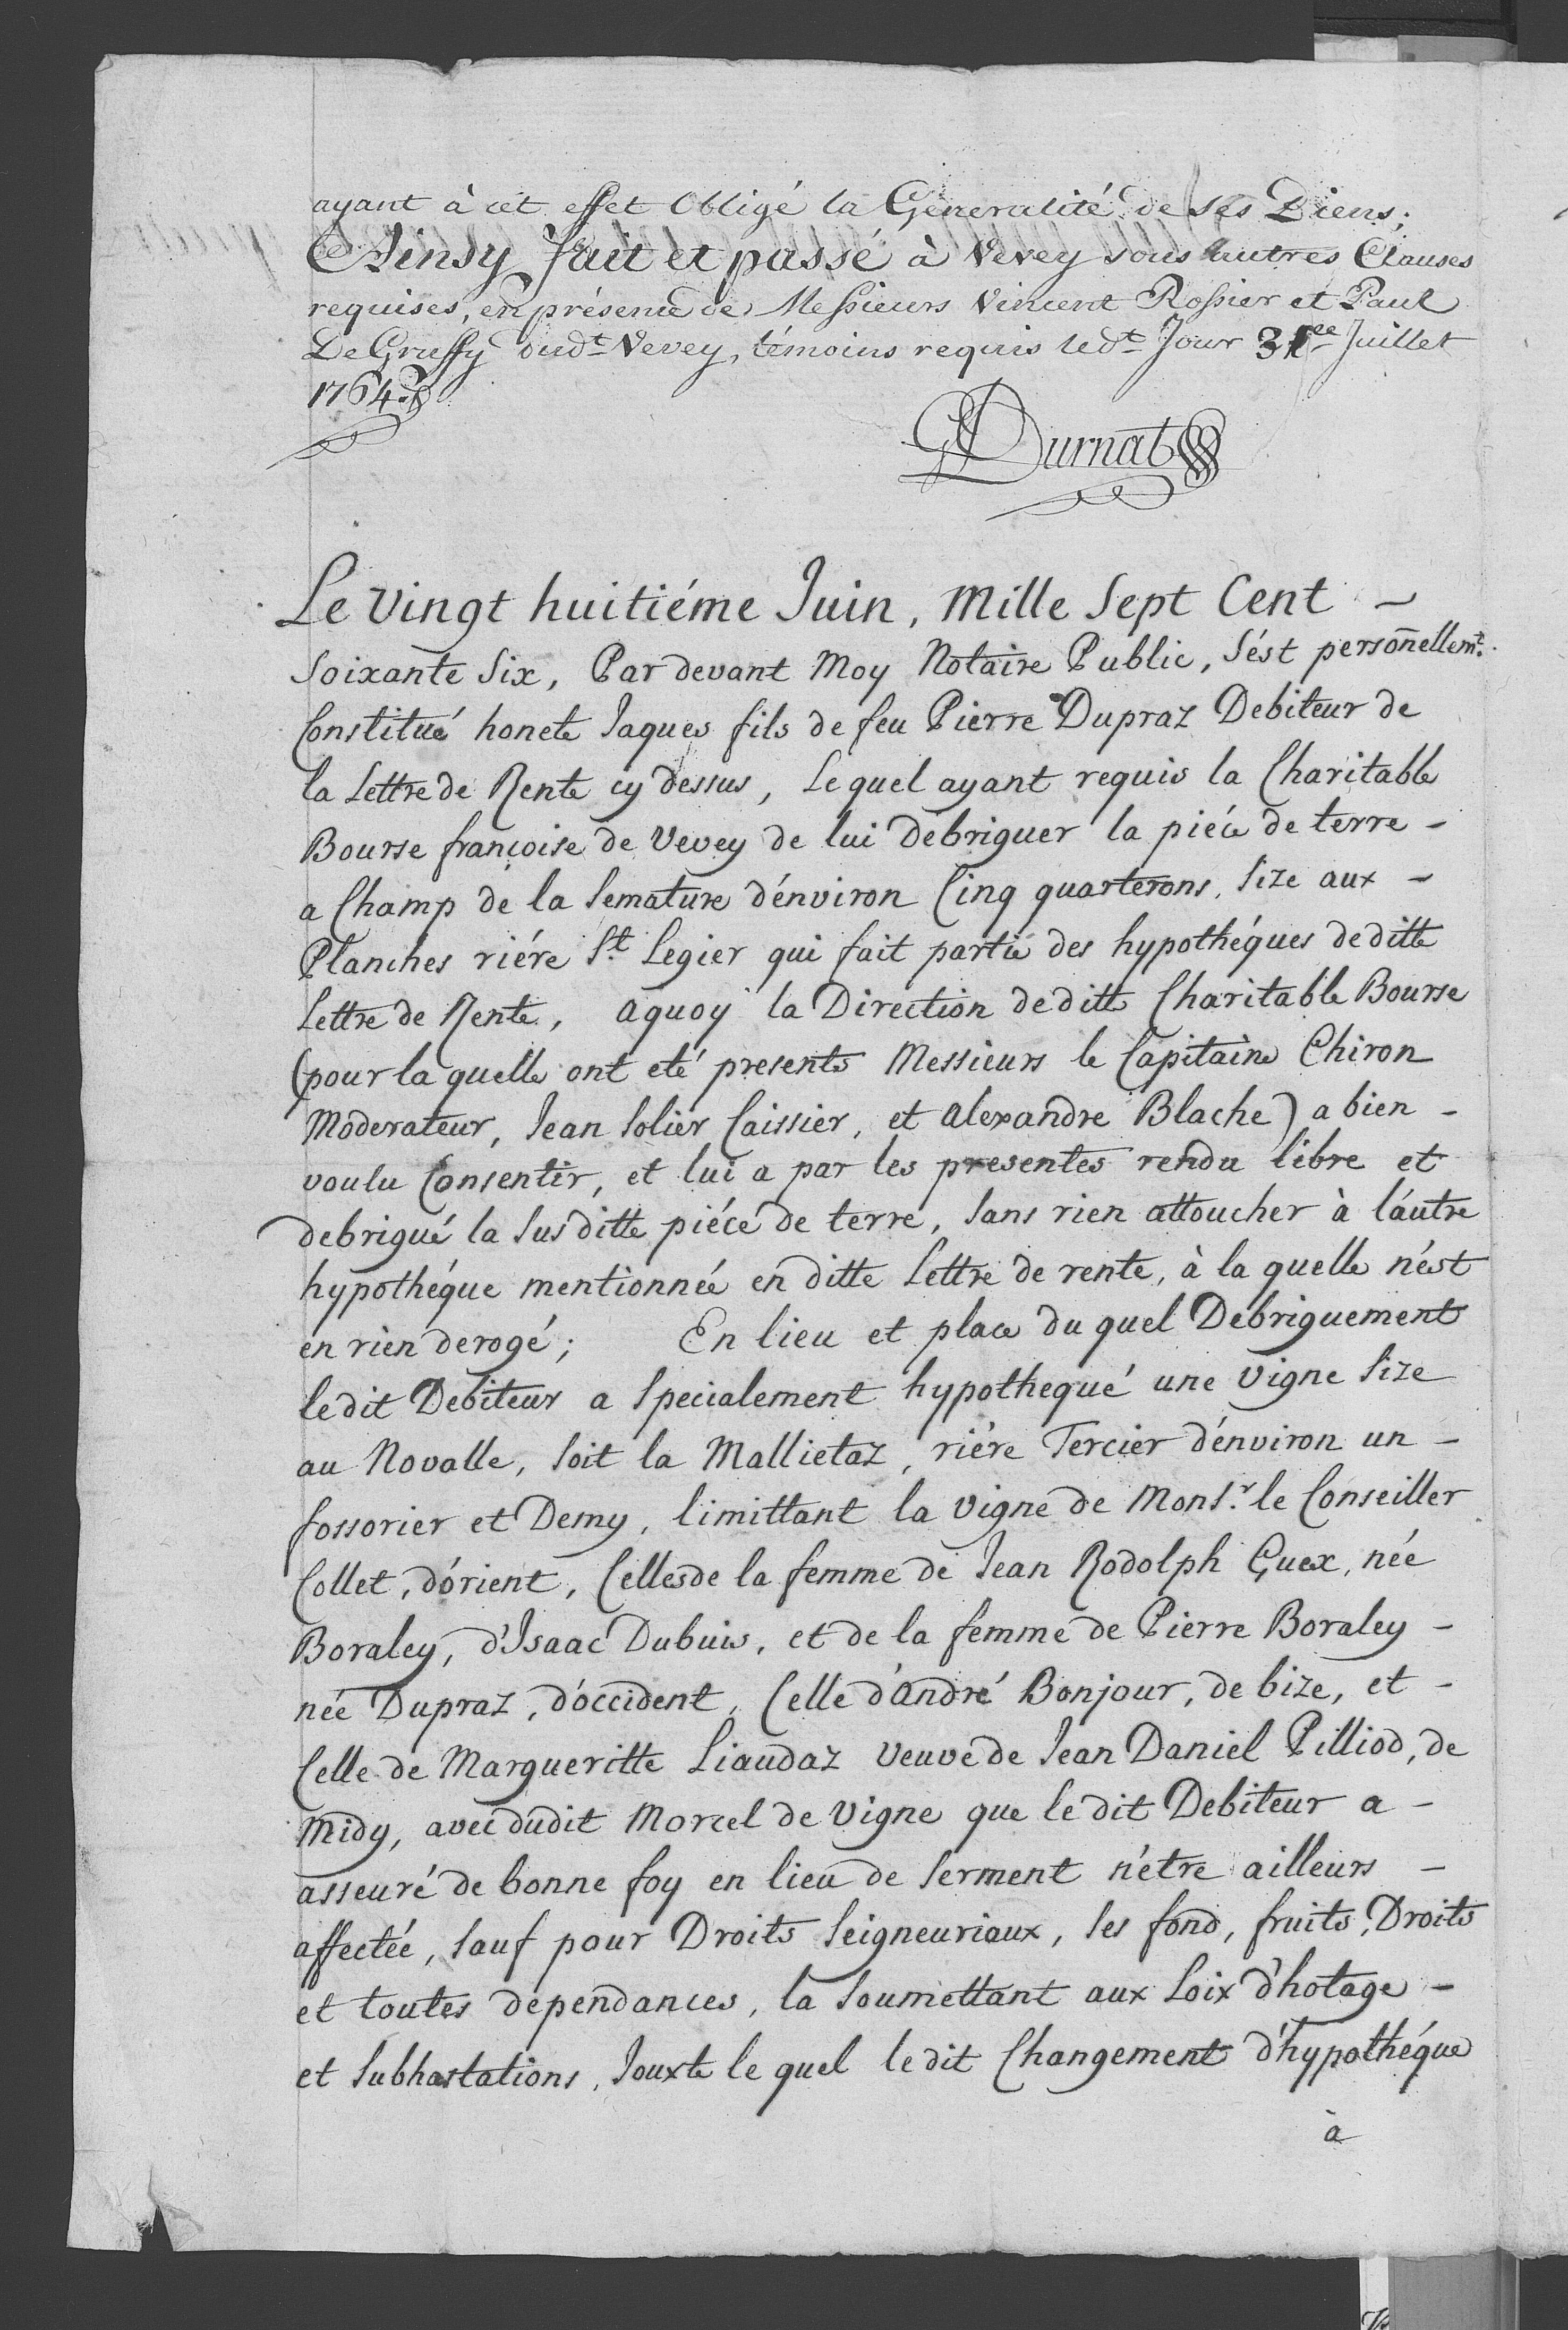 ayant à cet effet Obligé la Généralité de ses Biens;
Ainsy fait et passé à Vevey sous autres Clauses
requises, en présence de Messieurs Vincent Rossier et Paul
De Gruffy dud.t Vevey, témoins requis led.t Jour 31.ee Juillet
1764.
Durnat
Le vingt huitiéme Juin, Mille Sept Cent -
soixante Six, Par devant Moy Notaire Public, s'ést persoñellem.t
Constitué honete Jaques fils de feu Pierre Dupraz Debiteur de
la Lettre de Rente cy dessus, Le quel ayant requis la Charitable
Bourse françoise de Vevey de lui debriguer la piéce de terre -
a Champ de la Semature d'énviron Cinq quarterons, Size aux -
Planches riére S.t Legier qui fait partie des hypothéques de ditte
Lettre de Rente, aquoy la Direction de ditte Charitable Bourse
(pour la quelle ont eté presents Messieurs le Capitaine Chiron
Moderateur, Jean Solier Caissier, et Alexandre Blache) a bien -
voulu Consentir, et lui a par les presentes rendu libre et
debrigué la Sus ditte piéce de terre, Sans rien attoucher à l'áutre
hypothéque mentionnée en ditte Lettre de rente, à la quelle n'ést
en rien derogé; En lieu et place du quel Debriguement
le dit Debiteur a Specialement hypothequé une Vigne Size
au Novalle, Soit la Mallietaz, riére Tercier d'énviron un -
fossorier et Demy, limittant la Vigne de Mons.r le Conseiller
Collet, d'órient, Celles de la femme de Jean Rodolph Guex, née
Boraley, d'Isaac Dubuis, et de la femme de Pierre Boraley -
née Dupraz, d'óccident, Celle d'ándré Bonjour, de bize, et -
Celle de Margueritte Liaudaz Veuve de Jean Daniel Pilliod, de
Midy, avec dudit Morcel de Vigne que le dit Debiteur a -
asseuré de bonne foy en lieu de Serment n'étre ailleurs -
affectée, Sauf pour Droits Seigneuriaux, ses fond, fruits, Droits
et toutes dependances, la Soumettant aux Loix d'hotage -
et Subhastations, Jouxte le quel le dit Changement d'hypothéque
à